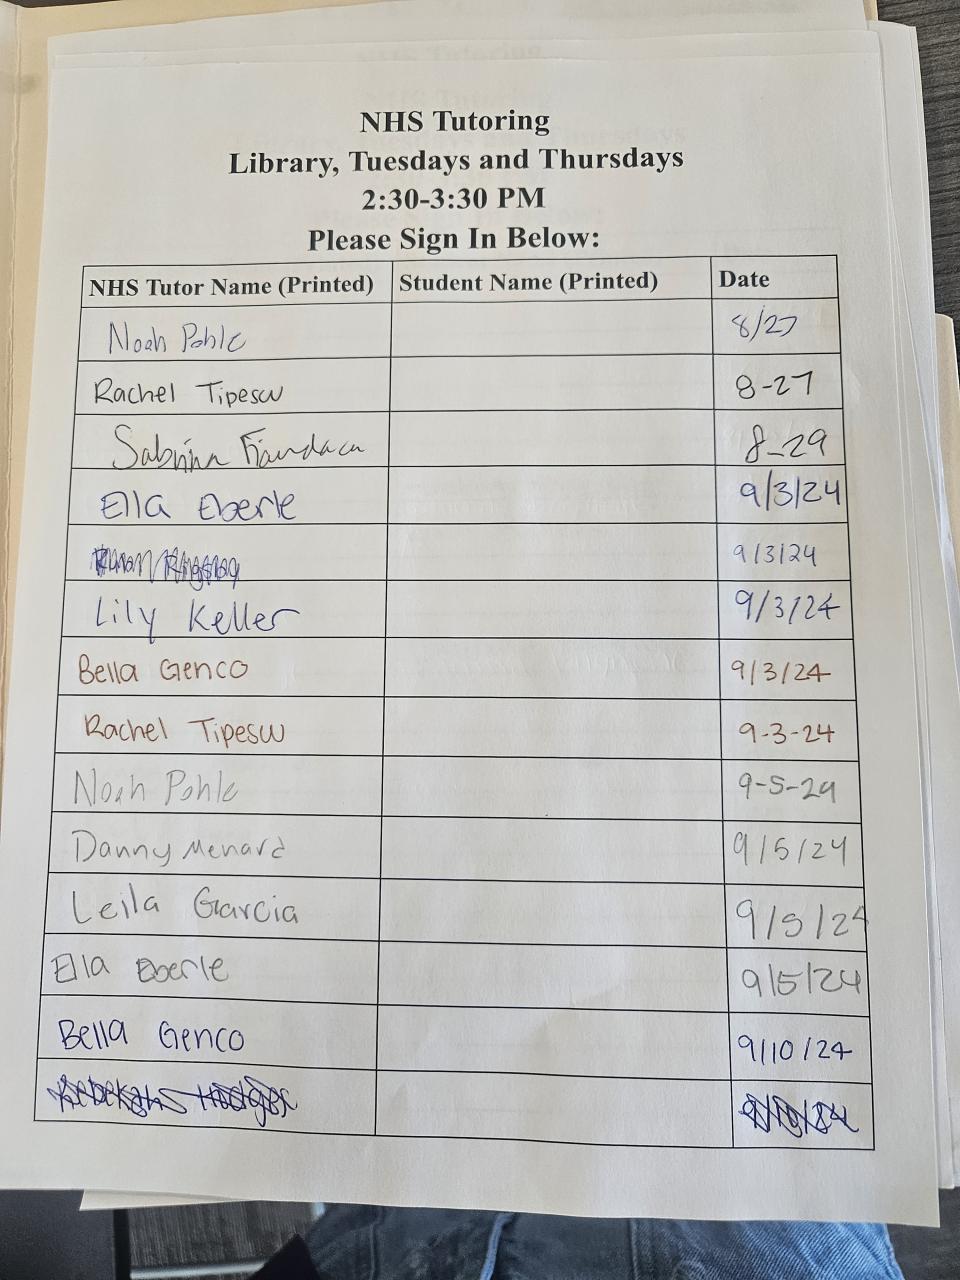 NHS Tutoring
Library, Tuesdays and Thursdays
2:30-3:30 PM
Please Sign In Below:
NHS Tutor Name (Printed) Student Name (Printed) Date
Noah Pohle 8/27
Rachel Tipescu 8-27
Sabrina Fiandaca 8-29
Ella Eberle 9/3/24
9/3/24
Lily Keller 9/3/24
Bella Genco 9/3/24
Rachel Tipescu 9-3-24
Noah Pohle 9-5-24
Danny Menard 9/5/24
Leila Garcia 9/5/24
Ella Eberle 9/5/24
Bella Genco 9/10/24